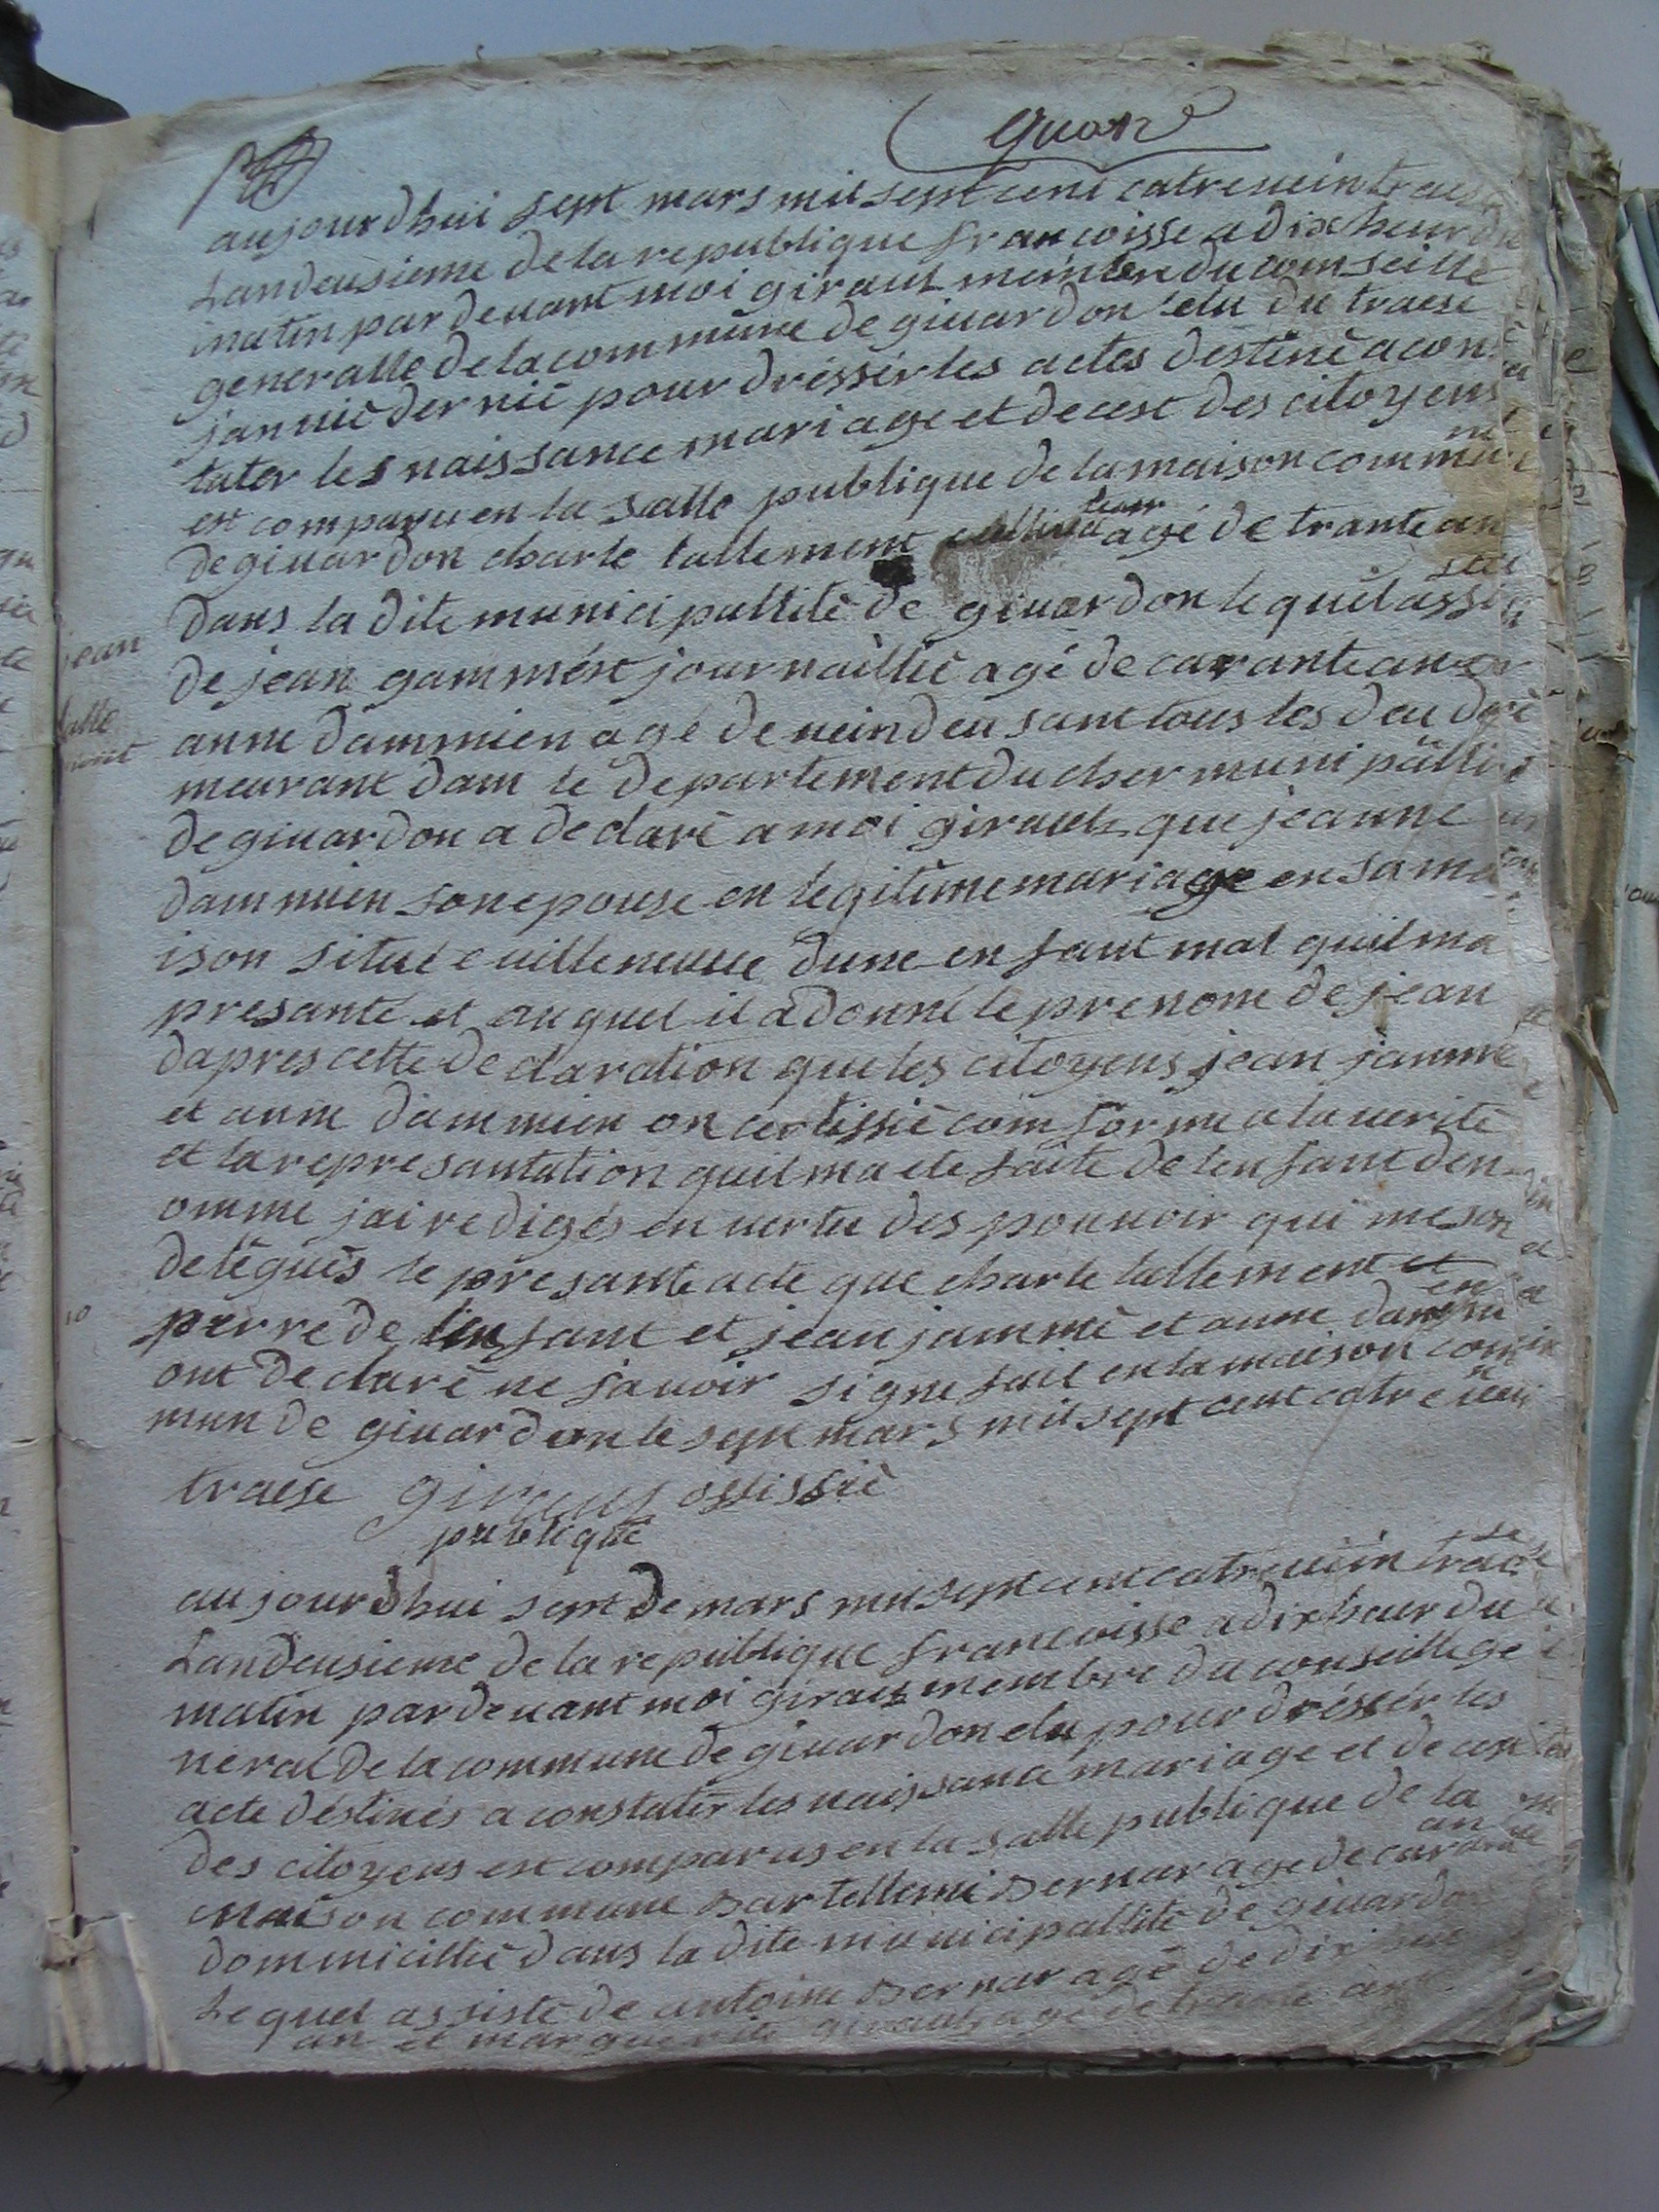 aujourdhui sept mars mil sept cent catre vein traese
Landeusieme de la republique francoisse a dix heur du
matin par devant moi giraut membre du comseille
generalle de la commune de givardon elu du traese
janvié dernié pour dréssér les actes destiné a cons
tater les naissance mariage et decest des citoyens
est comparu en la salle publique de la maison commune
de givardon charle tallement agé de trante an
dans la dite municipallité de givardon le quel assisté
de jean gammést journaillié agé de carante ans
jean
talle
ment
anne dammien agé de vein deu sant tous les deu dé
meurant dam le departement du cher muni pallité
de givardon a declaré a moi giraut que jeanne
dammien son epouse en legitime mariage en sa ma
ison situé e villeneuve dune enfant mal quil ma
presanté et au quel il a donné le prenom de jean
dapres cette declaration que les citoyens jean jamme
et anne dammien on certiffié comforme a la verité
et la represantation quil ma ete faite de lenfant den
omme jai redigés en vertu des pouvoir qui me son
delégués le presante acte que charle tallement et
perre de lenfant et jean jammé et anne dammien
ont declaré ne savoir signe fait en la maison com
mun de givardon le sept mars mil sept cent catre vein
traese giraut offissié
publique
aujourdhui sept de mars mil sept cent catre vein traese
Landeusieme de la republique francoisse a dix heur du
matin par devant moi giraut membre du conseille ge
neral de la commune de givardon elu pour dréssér les
acte déstinés a constatér les naissance mariage et de ces
des citoyens est comparus en la salle publique de la
maison commune Bartellemi Bernar agé de carante an
dommicillié dans la dite municipallité de givardon
Le quel assisté de antoine Bernar agé de dix
an et marguerite giraut agé de trante an